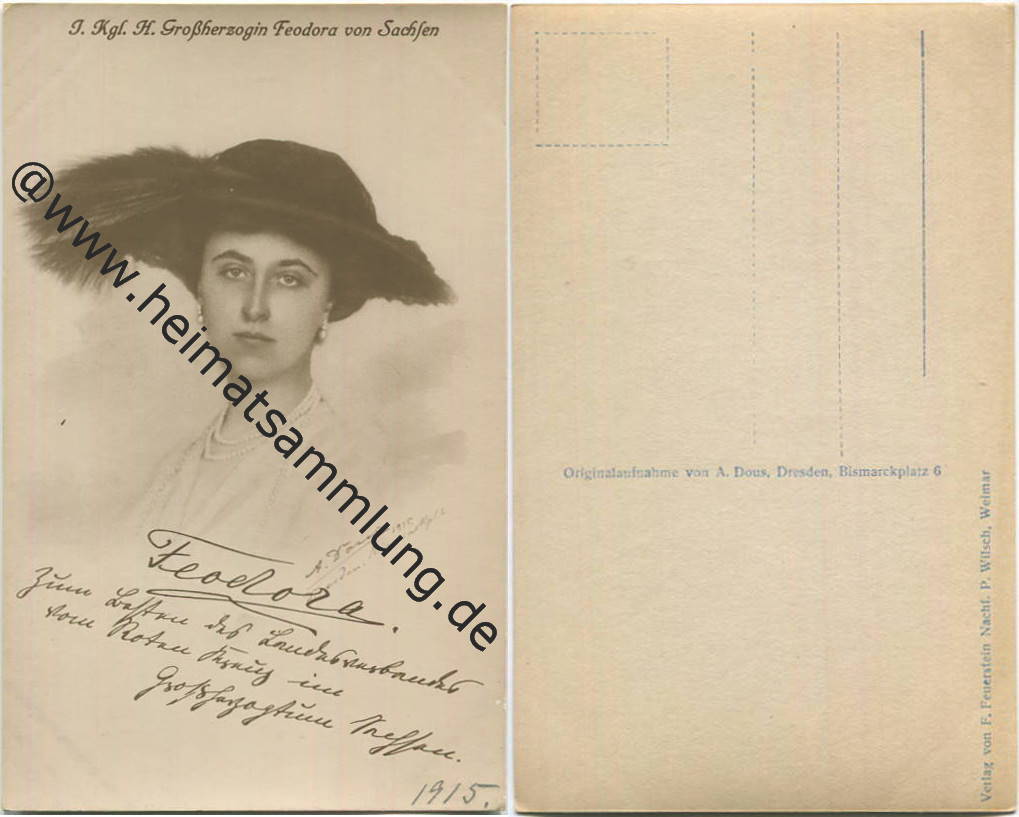 J. Kgl. H. Großherzogin Feodora von Sachsen
@www.heimatsammlung.de
A. Dous 1915
Feodora.
Zum Besten des Landesverbandes
vom Roten Kreuz im
Großherzogtum Sachsen.
1915.
Originalaufnahme von A. Dous, Dresden, Bismarckplatz 6
Verlag von F. Feuerstein Nachf. P. Wilsch, Weimar